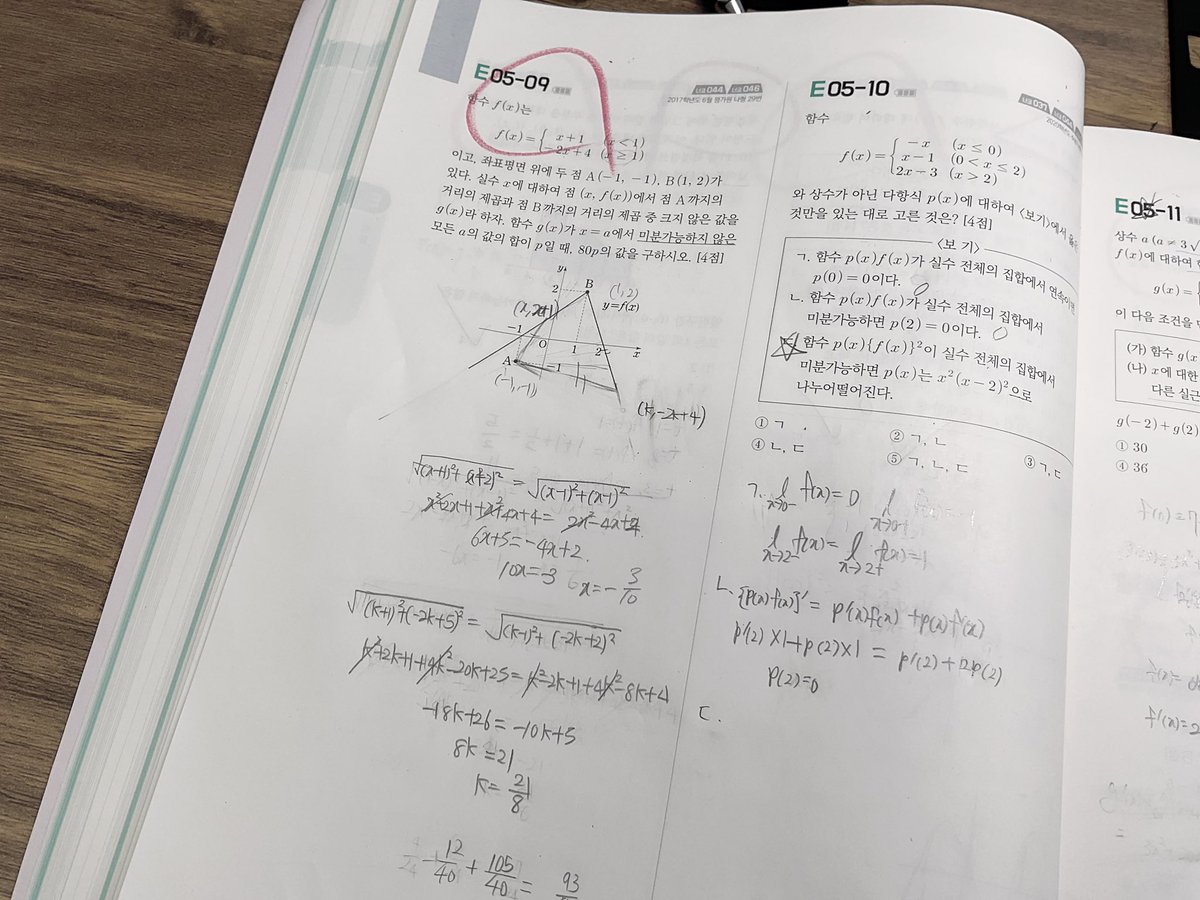 E05-09
너코 044 너코 046
2017학년도 6월 평가원 나형 29번
함수 f(x)는
f(x)={ x+1 (x<1)
-2x+4 (x≥1)
이고, 좌표평면 위에 두 점 A(-1, -1), B(1, 2)가
있다. 실수 x에 대하여 점 (x, f(x))에서 점 A까지의
거리의 제곱과 점 B까지의 거리의 제곱 중 크지 않은 값을
g(x)라 하자. 함수 g(x)가 x=a에서 미분가능하지 않은
모든 a의 값의 합이 p일 때, 80p의 값을 구하시오. [4점]
y
2 B (1,2)
y=f(x)
(x, x+1)
-1 O 1 2 x
A -1
(-1,-1)
(k,-2k+4)
√(x+1)²+(x+2)² = √(x-1)²+(x-1)²
x²+2x+1+x²+4x+4 = 2x²-4x+2
6x+5=-4x+2
10x=-3 x=-3/10
√(k+1)²+(-2k+5)² = √(k-1)²+(-2k+2)²
k²+2k+1+4k²-20k+25=k²-2k+1+4k²-8k+4
-18k+26=-10k+5
8k=21
k=21/8
-12/40+105/40=93
E05-10
너코 037
함수
f(x)={ -x (x≤0)
x-1 (0<x≤2)
2x-3 (x>2)
와 상수가 아닌 다항식 p(x)에 대하여 <보기>에서
것만을 있는 대로 고른 것은? [4점]
<보 기>
ㄱ. 함수 p(x)f(x)가 실수 전체의 집합에서 연속이면
p(0)=0이다.
ㄴ. 함수 p(x)f(x)가 실수 전체의 집합에서
미분가능하면 p(2)=0이다.
ㄷ. 함수 p(x){f(x)}²이 실수 전체의 집합에서
미분가능하면 p(x)는 x²(x-2)²으로
나누어떨어진다.
① ㄱ ② ㄱ, ㄴ ③ ㄱ, ㄷ
④ ㄴ, ㄷ ⑤ ㄱ, ㄴ, ㄷ
ㄱ. l x→0- f(x)=0 l x→0+
l x→2- f(x)= l x→2+ f(x)=1
ㄴ. {p(x)f(x)}'=p'(x)f(x)+p(x)f'(x)
p'(2)×1+p(2)×1=p'(2)+2p(2)
p(2)=0
ㄷ.
E05-11
상수 a (a≠3√
f(x)에 대하여
g(x)={
이 다음 조건을
(가) 함수 g(x
(나) x에 대한
다른 실근
g(-2)+g(2)
① 30
④ 36